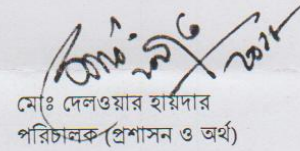 মোঃ দেলওয়ার হায়দার
পরিচালক (প্রশাসন ও অর্থ)